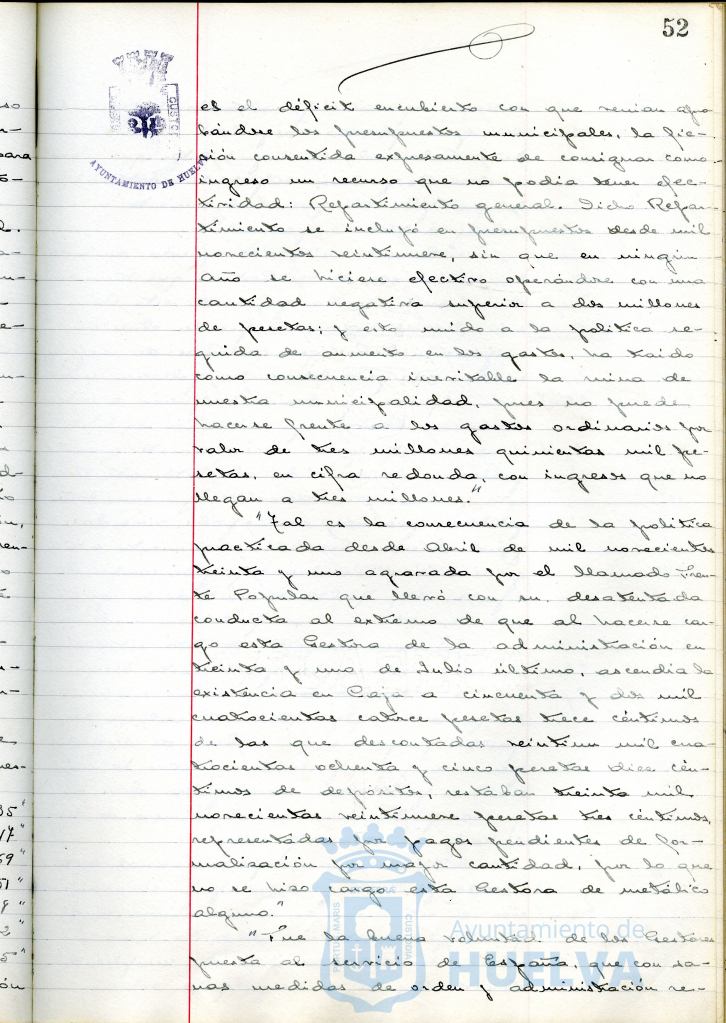 52
AYUNTAMIENTO DE HUELVA
es el déficit encubierto con que venian apro
bándose los presupuestos municipales, la fic-
ción consentida expresamente de consignar como
ingreso un recurso que no podia tener efec-
tividad: Repartimiento general. Dicho Repar-
timiento se incluyó en presupuestos desde mil
novecientos veintinueve, sin que en ningún
año se hiciese efectivo operándose con una
cantidad negativa superior a dos millones
de pesetas; y esto unido a la politica se-
guida de aumento en los gastos, ha traido
como consecuencia inevitable la ruina de
nuestra municipalidad, pues no puede
hacerse frente a los gastos ordinarios por
valor de tres millones quinientas mil pe-
setas, en cifra redonda, con ingresos que no
llegan a tres millones."
"Tal es la consecuencia de la politica
practicada desde Abril de mil novecientos
treinta y uno agravada por el llamado Fren-
te Popular que llevó con su desatentada
conducta al extremo de que al hacerse car-
go esta Gestora de la administración en
treinta y uno de Julio último, ascendia la
existencia en Caja a cincuenta y dos mil
cuatrocientas catorce pesetas trece céntimos
de las que descontadas veintiun mil cua-
trocientas ochenta y cinco pesetas diez cén-
timos de depósitos, restaban treinta mil
novecientas veintinueve pesetas tres céntimos,
representadas por pagos pendientes de for-
malización por mayor cantidad, por lo que
no se hizo cargo esta Gestora de metálico
alguno."
"Fue la buena voluntad de los Gestores
puesta al servicio de España, que con sa-
nas medidas de orden y administración re-
Ayuntamiento de
HUELVA